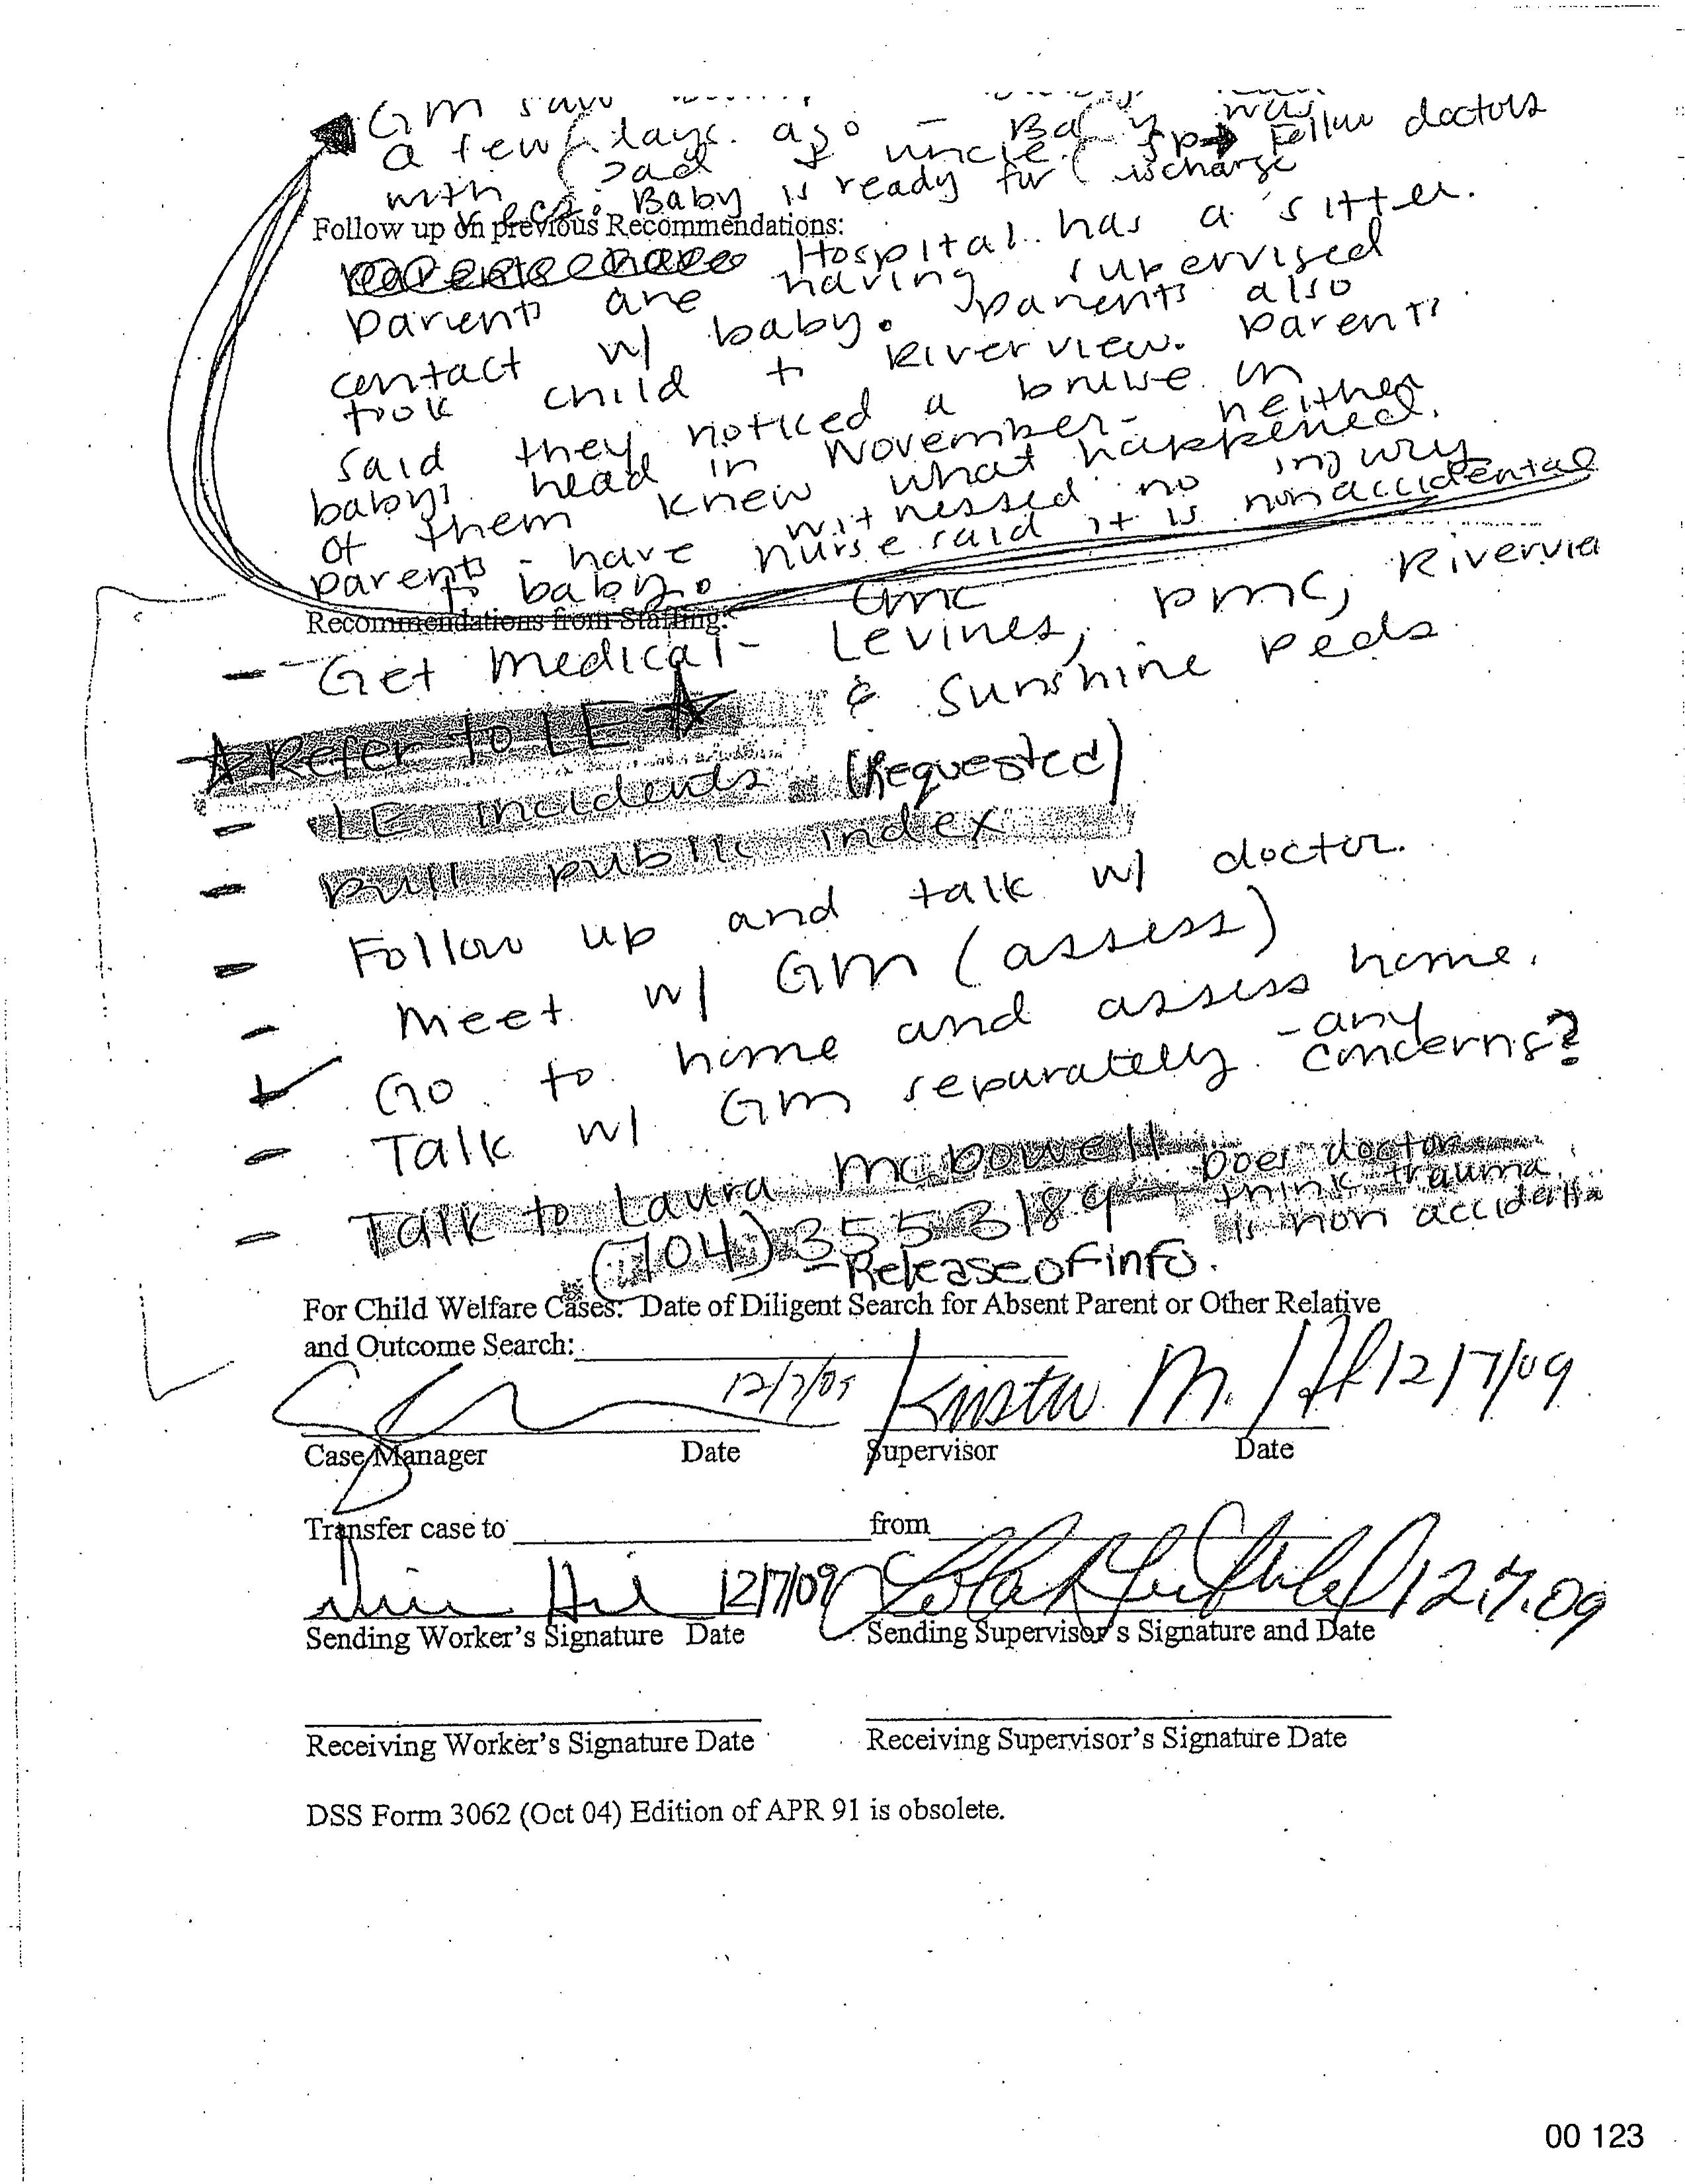 GM saw
a few days ago - Baby was
with dad & uncle. Follow doctors
recs. Baby is ready for discharge
Follow up on previous Recommendations:
Hospital has a sitter.
parents are having supervised
contact w/ baby. parents also
took child to Riverview. parents
said they noticed a bruise in
baby's head in November - neither
of them knew what happened.
parents - have witnessed no injury
to baby. nurse said it is nonaccidental
Recommendations from Staffing:
- Get medical - Levines, PMC, Rivervie
CMC
& Sunshine Peds
Refer to LE
- LE incidents (Requested)
- Pull public index
- Follow up and talk w/ doctor.
- Meet w/ GM (assess)
Go to home and assess home.
- Talk w/ GM separately - any concerns?
- Talk to Laura McDowell - Does doctor
(704) 355 3189 think trauma
is non accidental
- Release of info.
For Child Welfare Cases: Date of Diligent Search for Absent Parent or Other Relative
and Outcome Search:
12/7/09 12/7/09
Case Manager Date Supervisor Date
Transfer case to from
12/7/09 12.7.09
Sending Worker's Signature Date Sending Supervisor's Signature and Date
Receiving Worker's Signature Date Receiving Supervisor's Signature Date
DSS Form 3062 (Oct 04) Edition of APR 91 is obsolete.
00 123